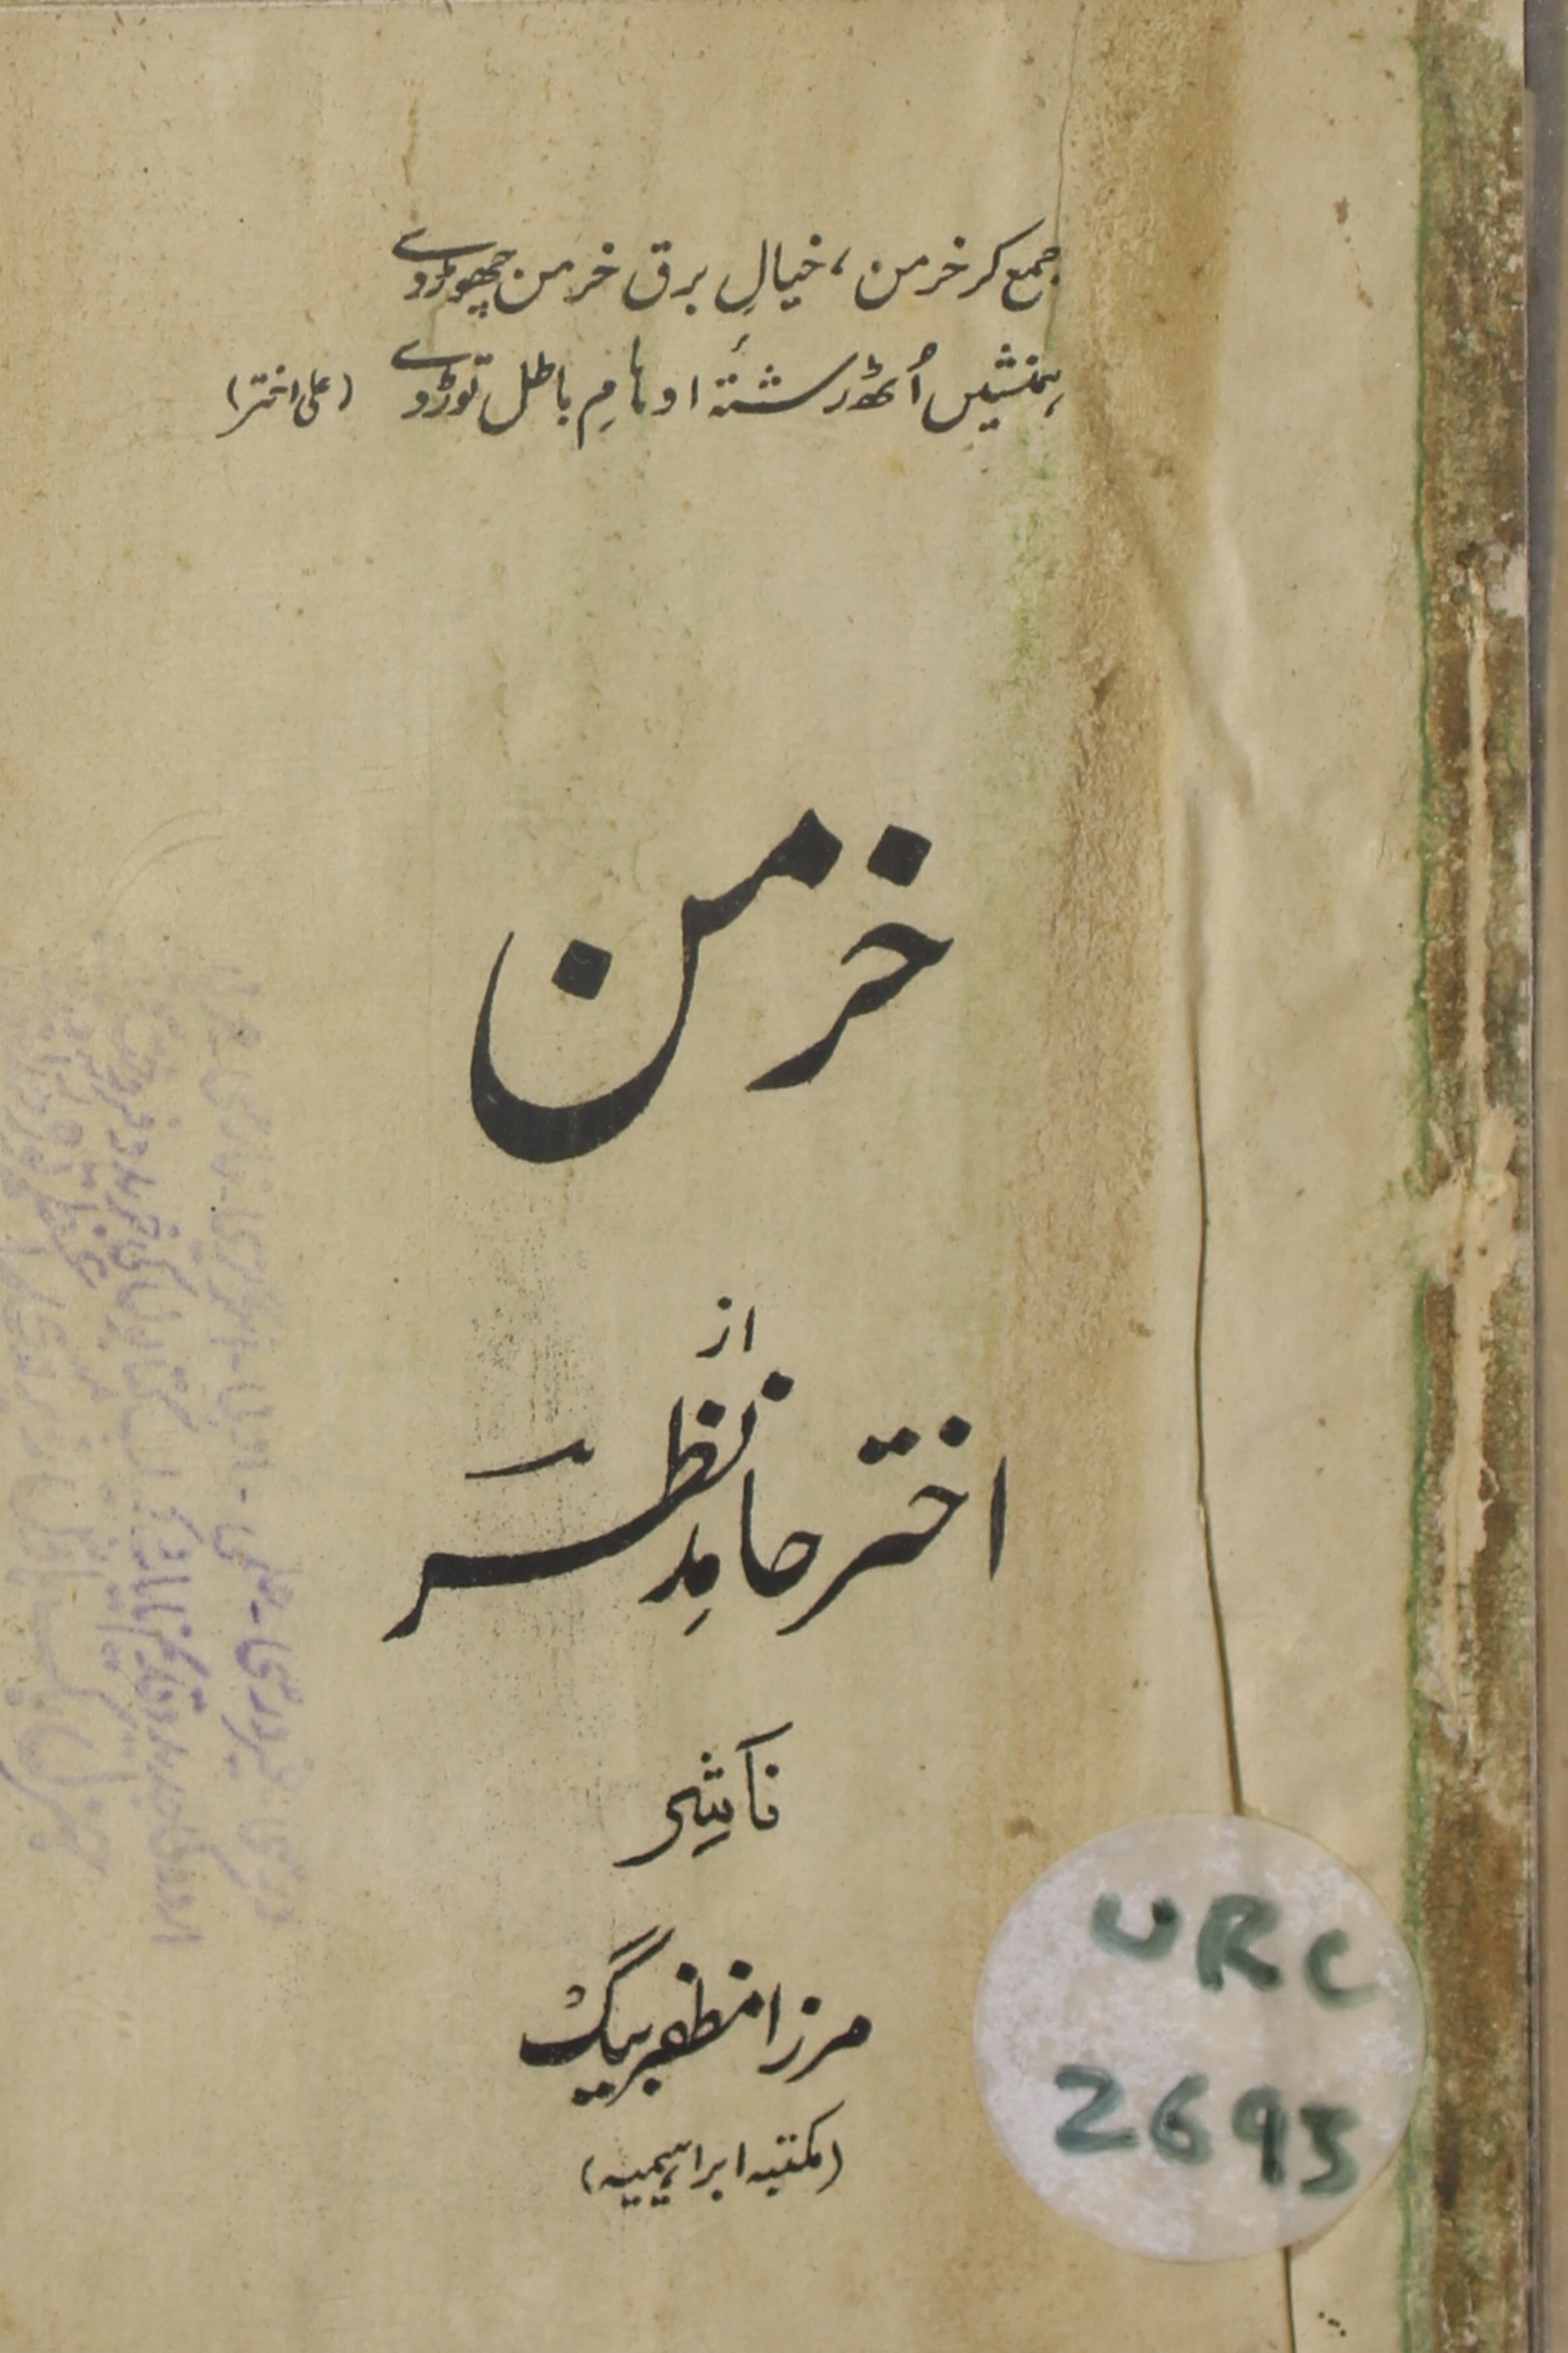 جمع کر خرمن، خیالِ برق خرمن چھوڑ دے
ہمنشیں اُٹھ رشتۂ اوہامِ باطل توڑ دے (علی اختر)
خرمن
از
اختر حامد نظر
ناشر
مرزا مظفر بیگ
(مکتبہ ابراہیمیہ)
URC
2693